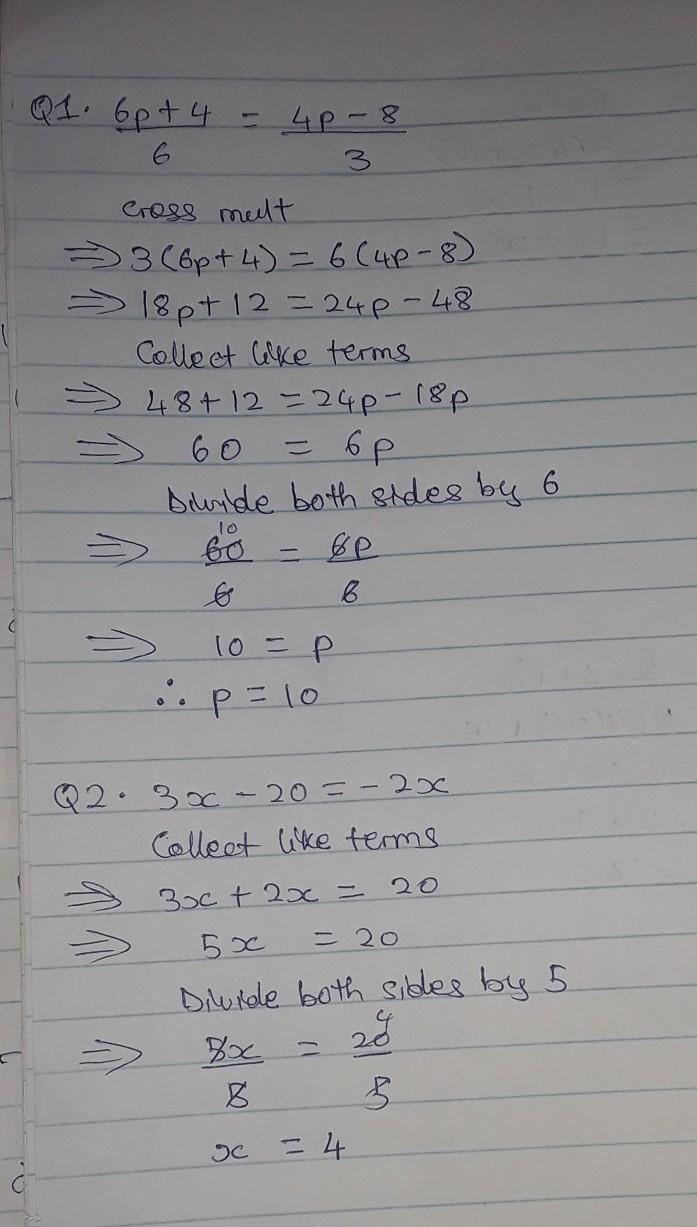 Q1. 6p+4 = 4p-8
6 3
cross mult
⇒ 3(6p+4) = 6(4p-8)
⇒ 18p+12 = 24p-48
Collect like terms
⇒ 48+12 = 24p-18p
⇒ 60 = 6p
Divide both sides by 6
10
⇒ 60 = 6p
6 6
⇒ 10 = p
∴ p = 10
Q2. 3x-20 = -2x
Collect like terms
⇒ 3x+2x = 20
⇒ 5x = 20
Divide both sides by 5
4
⇒ 5x = 20
5 5
x = 4